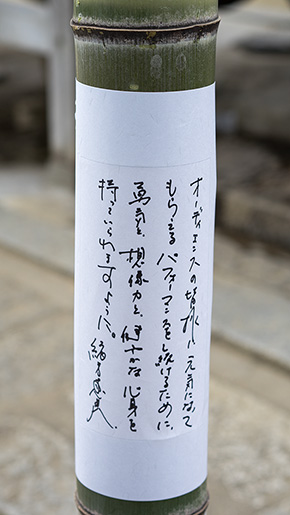 オーディエンスの皆様に元気になって
もらえるパフォーマンスをし続けるために、
勇気と、想像力と、健やかな心身を
持っていられますように。 緒方恵美